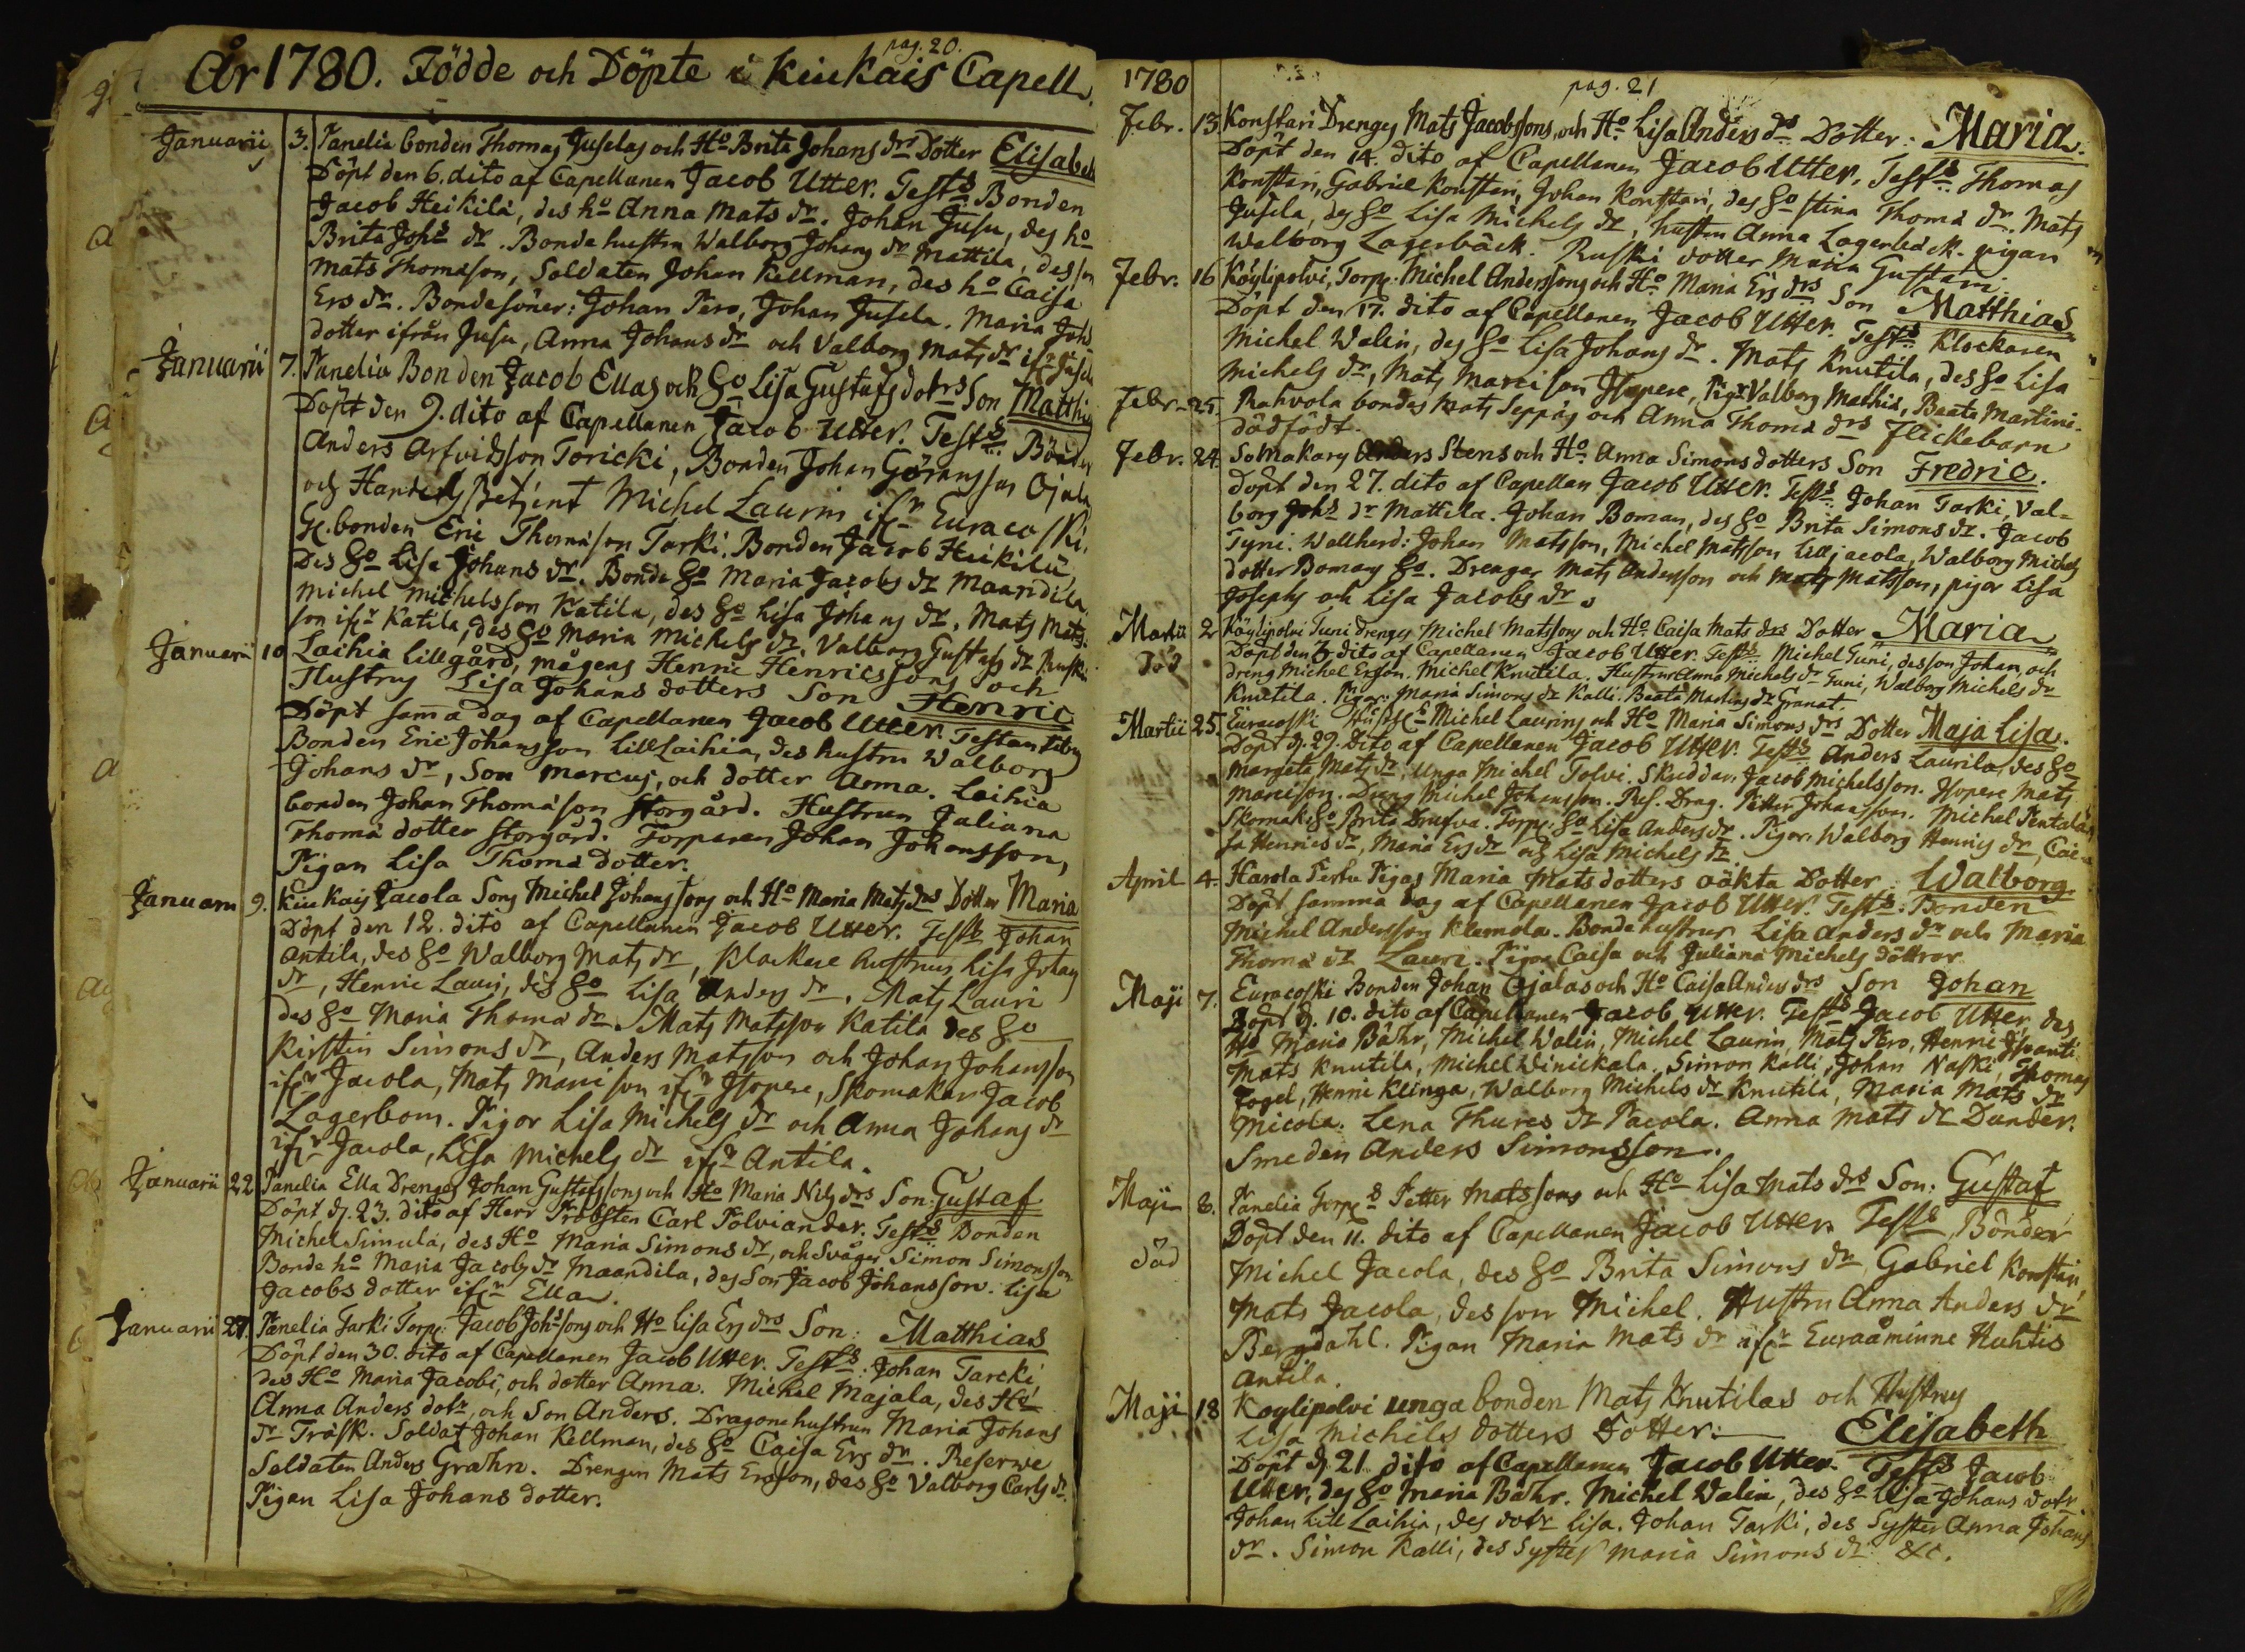 pag. 20.
År 1780. Födde och Döpte i Kiukais Capell
Januarii 3. Panelia bonden Thomas Juselas och Ho Brita Johans drs Dotter Elisabeth
Döpt den 6. dito af Capellanen Jacob Utter. Tests Bonden
Jacob Heikilä, des ho Anna Mats dr. Johan Jusu, des ho
Brita Johs dr. Bonde hustrun Walborg Johans dr Mattila, des son
Mats Thomason, Soldaten Johan Kellman, des ho Caisa
Ers dr. Bondesöner: Johan Pero, Johan Jusela. Maria Johs
dotter ifrån Jusu, Anna Johans dr och Valborg Mats dr ifr Jusela
Januarii 7. Panelia Bonden Jacob Ellas och Ho Lisa Gustafs dotrs Son Matthias
Döpt den 9. dito af Capellanen Jacob Utter. Tests Bönder
Anders Arfvidsson Toricki, Bonden Johan Göransson Ojala
och Handels Betjent Michel Laurin ifrn Euracoski.
bonden Eric Thomason Tarki. Bonden Jacob Heikilä,
Des Ho Lisa Johans dr. Bonde Ho Maria Jacobs dr Maandila.
Michel Michelsson Katila, des Ho Lisa Johans dr, Mats Mats-
son ifr Katila, des Ho Maria Michels dr, Valborg Gustafs dr Ruski
Januarii 10 Laihia Lillgård, mågens Henric Henricssons och
Hustrus Lisa Johans dotters Son Henric
Döpt samma dag af Capellanen Jacob Utter. Testantibus
Bonden Eric Johansson Lill Laihia, des hustru Walborg
Johans dr, Son Marcus, och dotter Anna. Laihia
bonden Johan Thomason Storgård. Hustrun Juliana
Thoma dotter Storgård. Torparen Johan Johansson,
Pigan Lisa Thoma dotter.
Januarii 9. Kiukais Jacola Sons Michel Johanssons och Ho Maria Mats drs Dotter Maria
Döpt den 12. dito af Capellanen Jacob Utter. Tests Johan
Antila, des Ho Walborg Mats dr, Klockare hustrun Lisa Johans
dr, Henric Lauri, des Ho Lisa Anders dr. Mats Lauri
des Ho Maria Thoma dr. Mats Matsson Katila des Ho
Kirstin Simons dr, Anders Matsson och Johan Johansson
ifrn Jacola, Mats Marcison ifrn Isopere, Skomakar Jacob
Lagerbom. Pigor Lisa Michels dr och Anna Johans dr
ifrn Jacola, Lisa Michels dr ifrn Antila.
Januarii 22 Panelia Ella Drengs Johan Gustafssons och Ho Maria Nils drs Son: Gustaf
Döpt d. 23. dito af Herr Probsten Carl Polviander. Tests Bonden
Michel Simula, des Ho Maria Simons dr, och Svåger Simon Simonsson
Bonde ho Maria Jacobs dr Maandila, des Son Jacob Johansson. Lisa
Jacobs dotter ifrn Ella.
Januarii 27. Panelia Tarki Torp: Jacob Johssons och Ho Lisa Ers drs Son: Matthias
Döpt den 30. dito af Capellanen Jacob Utter. Tests: Johan Tarcki
des Ho Maria Jacobs, och dotter Anna. Michel Majala, des Ho
Anna Anders dotr, och Son Anders. Dragone hustrun Maria Johans
dr Träsk. Soldat Johan Kellman, des Ho Caisa Ers dr. Reserve
Soldaten Anders Grahn. Drengen Mats Ersson, des Ho Valborg Carls dr.
Pigan Lisa Johans dotter.
1780
pag. 21
Febr. 13. Konstari Drengs Mats Jacobssons, och Ho Lisa Anders drs Dotter: Maria.
Döpt den 14. dito af Capellanen Jacob Utter, Tests Thomas
Konstari, Gabriel Konstari, Johan Konstari, des Ho Stina Thoma dr. Mats
Jusela, des Ho Lisa Michels dr, hustru Anna Lagerbäck. pigan
Walborg Lagerbäck. Ruski dotter Maria Gustavi.
Febr. 16 Köylipolvi, Torp: Michel Anderssons och Ho Maria Ers drs Son Matthias
Döpt den 17. dito af Capellanen Jacob Utter. Tests Klockaren
Michel Walin, des Ho Lisa Johans dr. Mats Knutila, des Ho Lisa
Michels dr, Mats Marcison Isopere, Pigr Valborg Mathiä, Beata Martini.
Febr. 25. Rahvola bondes Mats Seppäs och Anna Thoma drs Flickebarn
dödfödt.
Febr. 24. Somakars Anders Stens och Ho Anna Simons dotters Son Fredric.
döpt den 27. dito af Capellan Jacob Utter. Tests Johan Tarki, Val-
borg Johs dr Mattila. Johan Boman, des Ho Brita Simons dr. Jacob
Tyni. Wallherd: Johan Matsson, Michel Matsson Lilljacola, Walborg Michels
dotter Bomans Ho. Drengar Mats Andersson och Mats Matsson, pigor Lisa
Josephs och Lisa Jacobs dr.
Martii 2 Köylipolvi Tuni drengs Michel Matssons och Ho Caisa Mats drs Dotter Maria
Död Döpt den 3 dito af Capellanen Jacob Utter Tests Michel Tuni, des son Johan, och
dreng Michel Ersson. Michel Knutila. Hustrun Anna Michels dr Tuni, Walborg Michels dr
Knutila. Pigor: Maria Simons dr Kalli. Beata Martins dr Granat.
Martii 25. Euracoski Michel Laurins och Ho Maria Simons drs Dotter Maja Lisa.
Döpt d. 29. Dito af Capellanen Jacob Utter. Tests Anders Laurila, des Ho
Margeta Mats dr, Unga Michel Tolvi. Skräddar. Jacob Michelsson. Isopere Mats
Marcison. Dreng Michel Johansson. Res. Drag. Petter Johansson. Michel Pentala
Skomak. Ho Brita Drufva. Torp: Ho Lisa Anders dr. Pigor: Walborg Henrics dr, Cai-
sa Henrics dr, Maria Ers dr och Lisa Michels dr.
April 4. Harola Pertu Pigas Maria Mats dotters oäkta Dotter: Walborg.
Döpt samma dag af Capellanen Jacob Utter. Tests: Bonden
Michel Andersson Klemola. Bonde hustrur Lisa Anders dr och Maria
Thoma dr Lauri. Pigor Caisa och Juliana Michels döttrar
Maji 7. Euracoski Bonden Johan Ojalas och Ho Caisa Anders drs Son Johan
Döpt d. 10. dito af Capellanen Jacob Utter. Tests Jacob Utter, des
Ho Maria Bähr, Michel Walin, Michel Laurin, Mats Pero, Henric Isoanti
Mats Knutila, Michel Winickala, Simon Kalli, Johan Naski, Thomas
Fogel, Henric Klinga, Walborg Michels dr Knutila, Maria Mats dr
Micola. Lena Thures dr Pacola. Anna Mats dr Dunder.
Smeden Anders Simonsson.
Maji 8. Panelia Torps Petter Matssons och Ho Lisa Mats drs Son: Gustaf
Döpt den 11. dito af Capellanen Jacob Utter. Tests Bönder
död Michel Jacola, des Ho Brita Simons dr, Gabriel Konstari,
Mats Jacola, des son Michel. Hustru Anna Anders dr
Bergdahl. Pigan Maria Mats dr ifrn Euraåminne Huhtis
Antila.
Maji 18 Köylipolvi unga bonden Mats Knutilas och Hustrus
Lisa Michils dotters Dotter: Elisabeth
Döpt d. 21 dito af Capellanen Jacob Utter. Tests Jacob
Utter, des Ho Maria Bähr. Michel Walin, des Ho Lisa Johans dotr
Johan Lill Laihia, des dotr Lisa. Johan Tarki, des Syster Anna Johans
dr. Simon Kalli, des Syster Maria Simons dr &c.